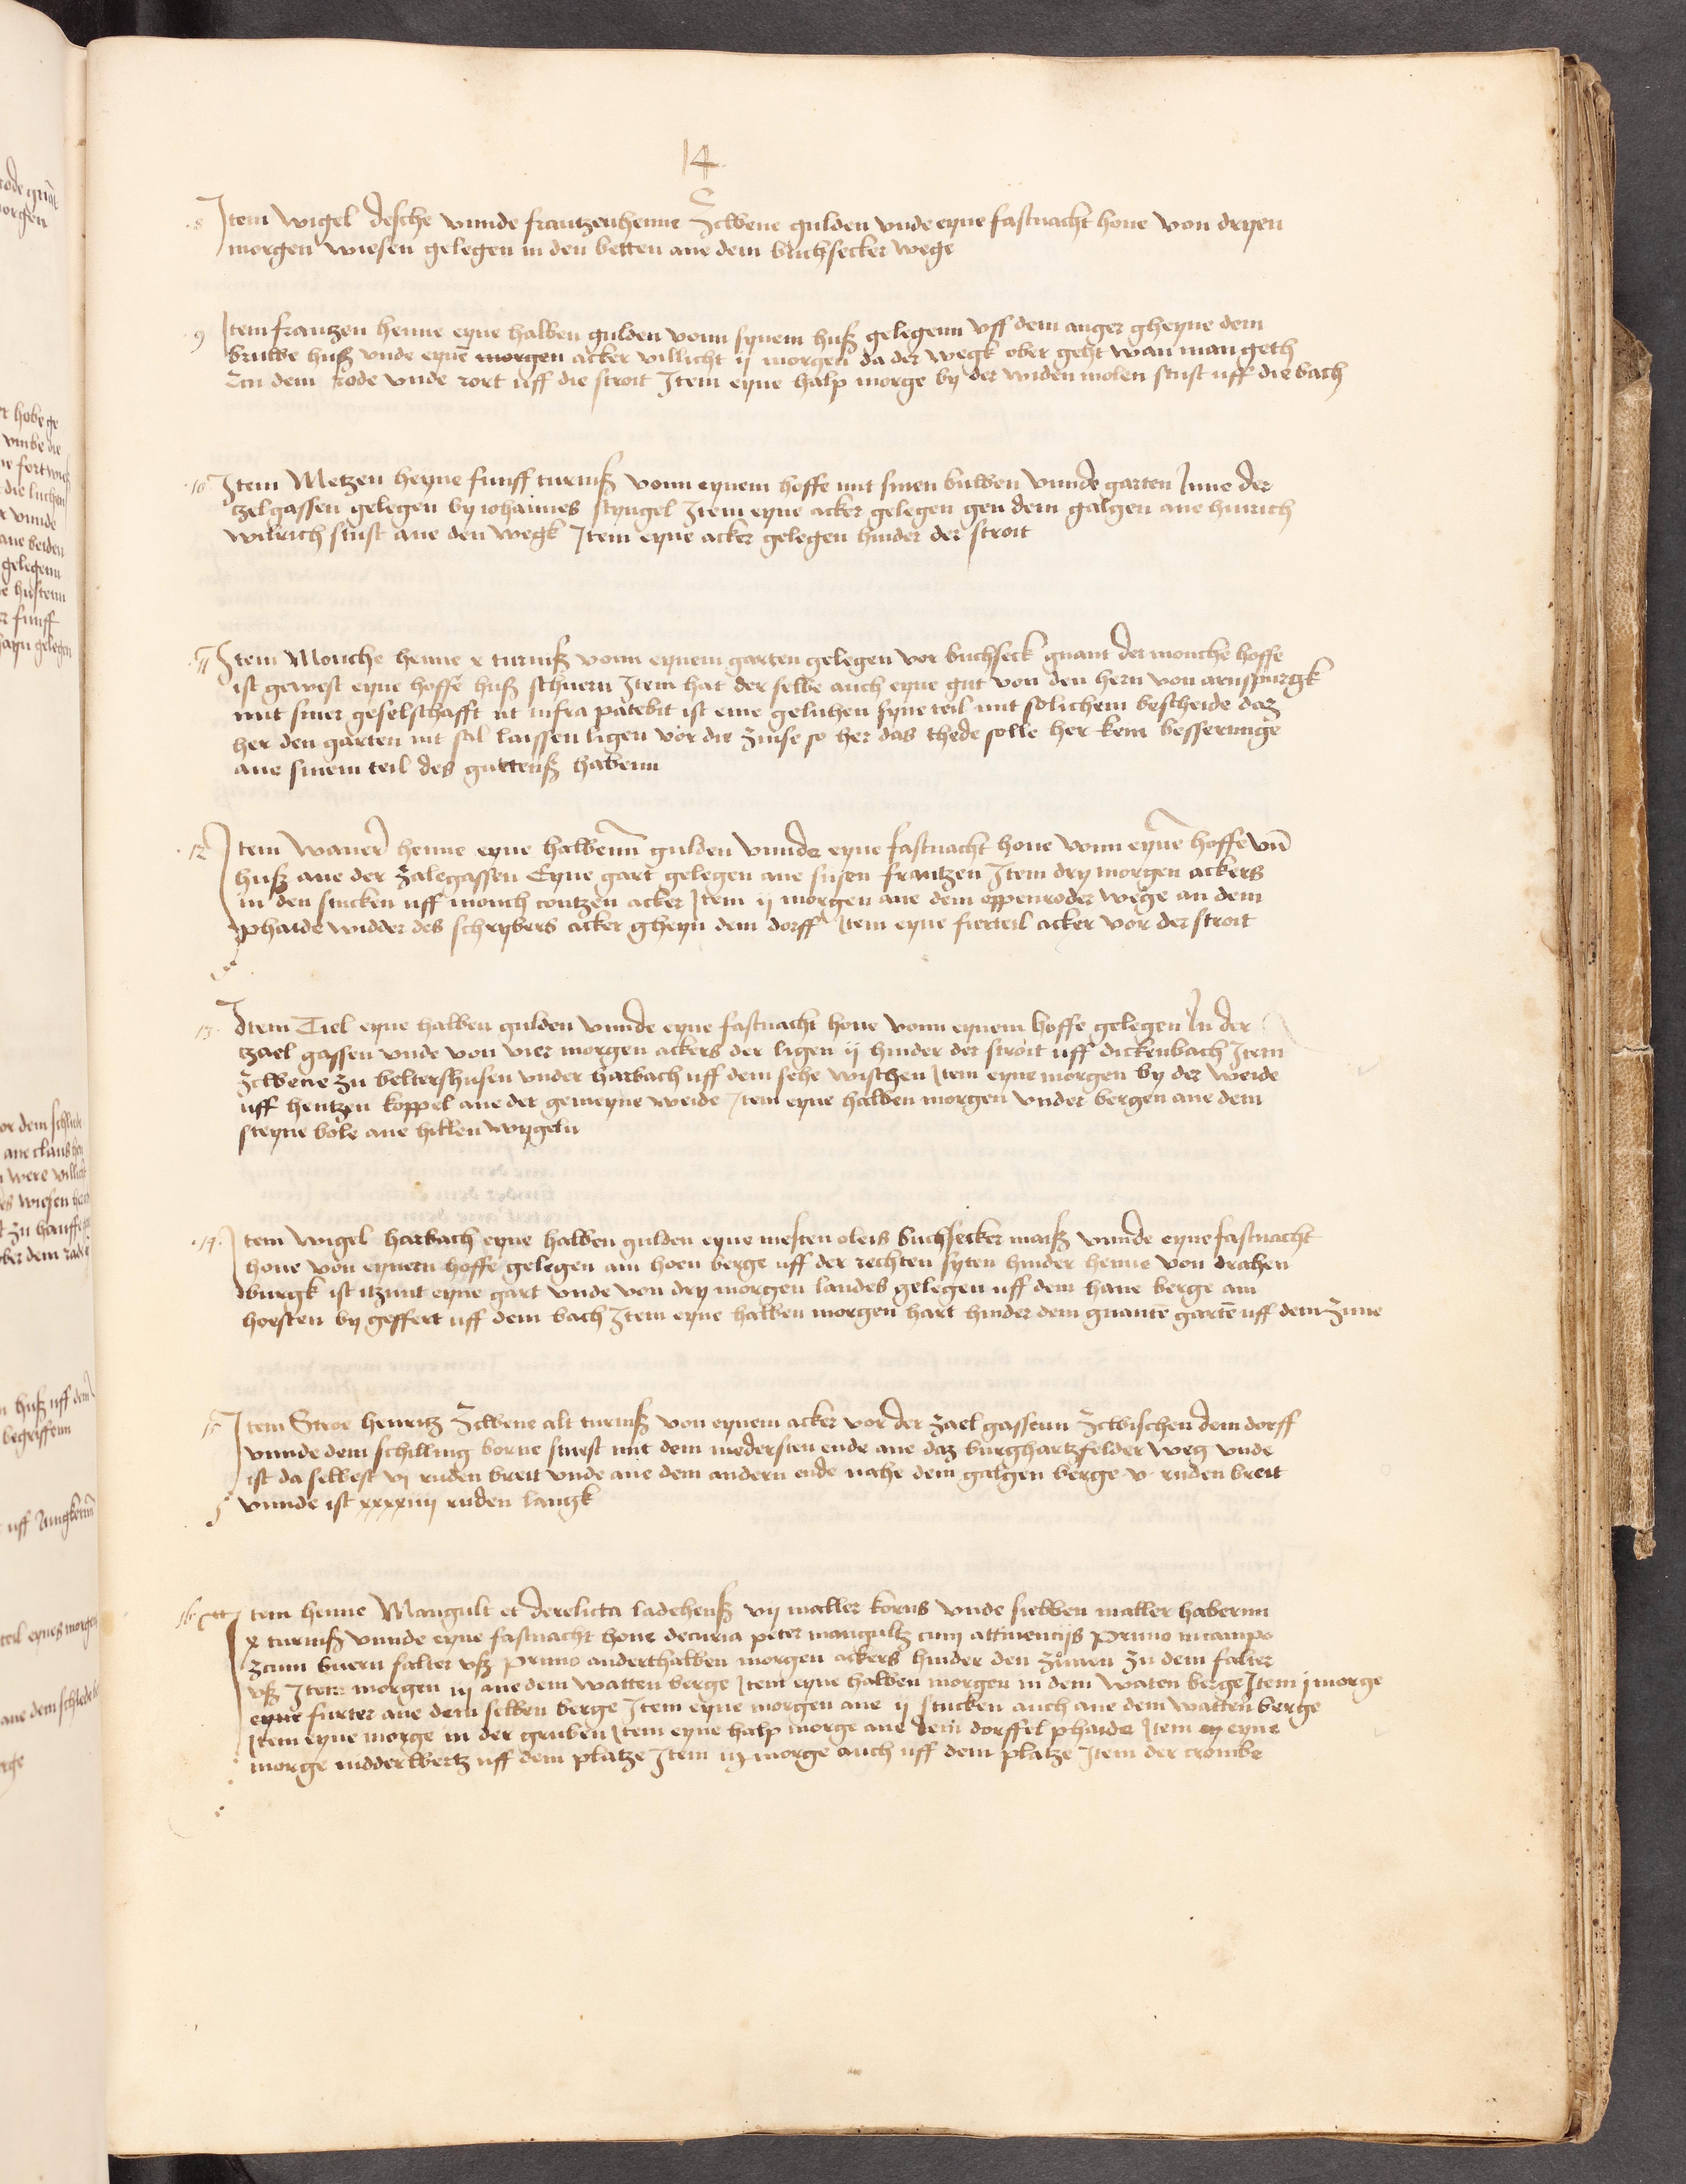 14
8 Item wigel desche vnnde frantzenhenne Zcwene gulden vnde eyne fastnacht hone von dryen
morgen wiesen gelegen in den betten ane dem buchsecker wege
9 Item frantzen henne eyne halben gulden vonn synem huß gelegenn vff dem anger gheyne dem
bruwe huß vnde eynē morgen acker villicht ij morgen da der wegk ober geht wan man geth
Zcu dem rode vnde rort uff die stroit Item eyne halp morge by der widen molen stust uff die bach
10 Item Metzen heyne funff turniß vonn eynem hoffe mit sinen buwen vnnde garten Inne der
tzelgassen gelegen by iohannes styngel Item eyne acker gelegen gen dem galgen ane hinrich
wilrich stust ane den wegk Item eyne acker gelegen hinder der stroit
11 Item Monche henne x turniß vonn eynem garten gelegen vor buchseck gnant der monche hoffe
ist gewest eyne hoffe huß schuern Item hat der selbe auch eyne gut von den hern von arnspurgk
mit siner geselschafft ut infra patebit ist eme geluhen syne teil mit solichem bescheide daz
her den garten nit sal laissen ligen vor die zinse so her das thede solle her kein besserunge
ane sinem teil des guttenß habenn
12 Item waner henne eyne halbenn gulden vnnde eyne fastnacht hone vonn eynē hoffe vn̄
huß ane der Zalegassen Eyne gart gelegen ane sifen frantzen Item dry morgen ackers
in den stucken uff monch contzen acker Item ij morgen ane dem oppenroder wege an dem
phaide widder des schrybers acker gheyn dem dorff Item eyne fierteil acker vor der stroit
13 Item Tiel eyne halben gulden vnnde eyne fastnacht hone vonn eynem hoffe gelegen In der
tzael gassen vnde von vier morgen ackers der ligen ij hinder der stroit uff dickenbach Item
Zcwene zu beltershusen vnder harbach uff dem sehe wischen Item eyne morgen by der weide
uff hentzen koppel ane der gemeyne weide Item eyne halben morgen vnder bergen ane dem
steyne bole ane hillen wygeln
14 Item wigel harbach eyne halben gulden eyne mesten oleis buchsecker maiß vnnde eyne fastnacht
hone von eynem hoffe gelegen am hoen berge uff der rechten syten hinder henne von drahen
dburgk ist itzunt eyne gart vnde von dry morgen landes gelegen uff dem hane berge am
hoesten by geffert uff dem bach Item eyne halben morgen hart hinder dem gnantē gartē uff dem Zune
15 Item Stroe henritz Zcwene alt turniß von eynem acker vor der zael gassenn Zcwischen dem dorff
vnnde dem schilling borne stuest mit dem nedersten ende ane daz burghartzfelder weg vnde
ist da selbest vj ruden breit vnde ane dem andern ende nahe dem galgen berge v ruden breit
vnnde ist xxxxiiij ruden langk
16 Item henne Mangult et derelicta ladehenß vij malter korns vnde siebben malter habernn
x turniß vnnde eyne fastnacht hone de curia peter mangultz cum attinencijs Primo in campo
Zcum buern falter vß Primo anderthalben morgen ackers hinder den Zunen Zu dem falter
vß Item morgen iij ane dem watten berge Item eyne halben morgen in dem waten berge Item j morge
eyne furter ane dem selben berge Item eyne morgen ane ij stucken auch ane dem watten berge
Item eyne morge in der gruben Item eyne halp morge ane dem dorffel phaide Item ey eyne
morge nidderwertz uff dem platze Item iij morge auch uff dem platze Item der crombe